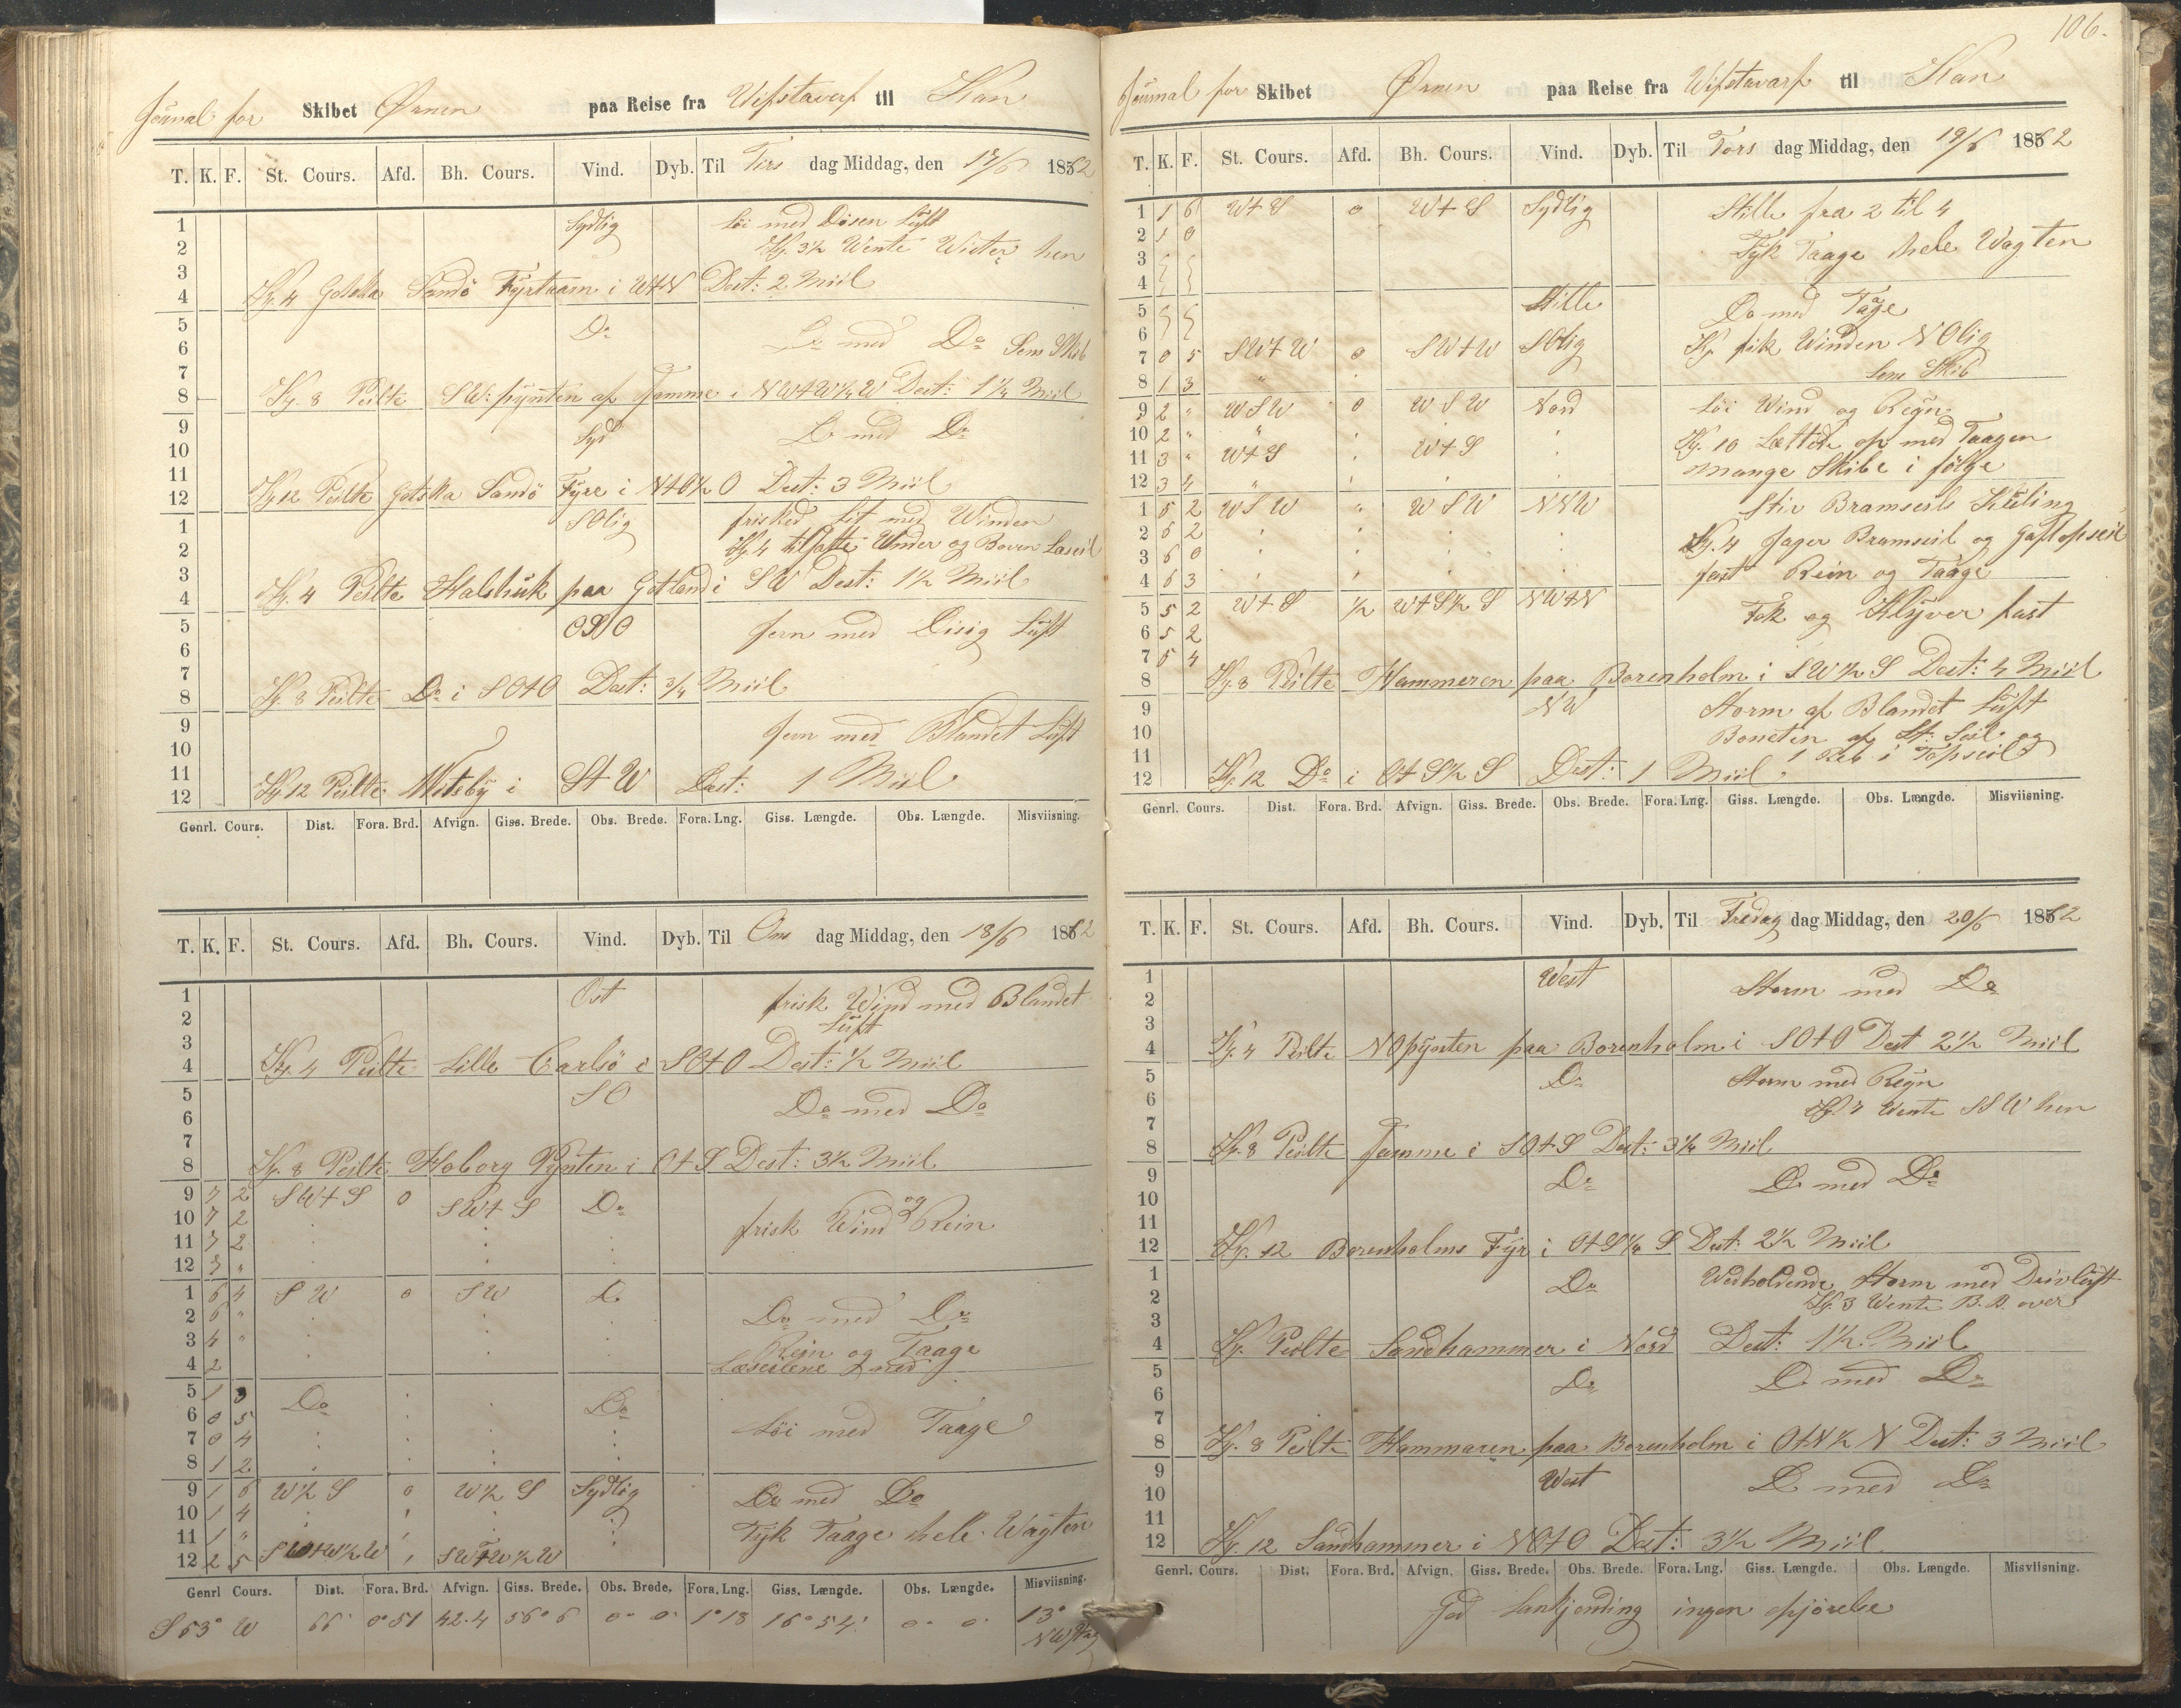 Journal for Skibet Ørnen paa Reise fra Wifstavarf til
T. K. F. St. Cours. Afd. Bh. Cours. Vind. Dyb. Til Tirs dag Middag, den 17/6 1862
1 Sydlig Löi med Disen Luft
2 Kl. 3½ Wente Wester hen
3
4 Kl. 4 Gotska Sandö Fyrtaarn i W+N Dest: 2 Miil
5 Do Do med Do
6 Sem Skib
7
8 Kl. 8 Peilte SW. pynten af Samme i NW+W¼W Dest: 1¼ Miil
9 Syd Do med Do
10
11
12 Kl 12 Peilte Gotska Sandö Fyre i N+O½O Dest: 3 Miil
1 SOlig frisked lit med Winden
2 Kl. 4 tilsatte Under og Boven Læseil
3
4 Kl. 4 Peilte Halshuk paa Gotland i SW Dest: 1½ Miil
5 OSO Jevn med Disig Luft
6
7
8 Kl. 8 Peilte Do i SO+O Dest: ¾ Miil
9 Jevn med Blandet Luft
10
11
12 Kl 12 Peilte Wisby i St W Dest: 1 Miil
Genrl. Cours. Dist. Fora. Brd. Afvign. Giss. Brede. Obs. Brede. Fora. Lng. Giss. Længde. Obs. Længde. Misviisning.
T. K. F. St. Cours. Afd. Bh. Cours. Vind. Dyb. Til Ons dag Middag, den 18/6 1862
1 Ost frisk Wind med Blandet
2 Luft
3
4 Kl. 4 Peilte Lille Carlsö i SO+O Dest: ½ Miil
5 SO Do med Do
6
7
8 Kl. 8 Peilte Hoborg Pynten i O+S Dest: 3½ Miil
9 7 2 SW+S 0 SW+S Do
10 7 2 frisk Wind og Rein
11 7 2
12 7 "
1 6 4 SW 0 SW Do
2 6 " Do med Do
3 4 " Rein og Taage
4 2 Læseilene
5 1 3 Do Do
6 0 5 Löi med Taage
7 0 4
8 1 2
9 1 6 W½S 0 W½S Sydlig Do med Do
10 1 4 Tyk Taage hele Wagten
11 1 "
12 2 5 SW+W½W SW+W½W
Genrl Cours. Dist. Fora. Brd. Afvign. Giss. Brede. Obs. Brede. Fora. Lng. Giss. Længde. Obs. Længde. Misviisning.
S 53° W 66' 0° 51 42.4 56° 6 0° 0' 1° 18 16° 54' 0° 0' 13°
106.
Journal for Skibet Ørnen paa Reise fra Wifstavarf til
T. K. F. St. Cours. Afd. Bh. Cours. Vind. Dyb. Til Tors dag Middag, den 19/6 1862
1 1 6 W+S 0 W+S Sydlig Stille fra 2 til 4
2 1 0 Tyk Taage hele Wagten
3
4
5 Stille Do med Tåge
6 Kl fik Winden NOlig
7 0 5 SW+W 0 SW+W SOlig
8 1 3 " Sem Skib
9 2 " WSW 0 WSW Nord Löi Wind og Regn
10 2 " " Kl. 10 Lettede op med Taagen
11 3 " W+S W+S mange Skibe i fölge
12 3 4 "
1 5 2 WSW " WSW NNW Stiv Bramseils Kuling
2 6 2 Kl. 4 Jager Bramseil og Gaftopseil
3 6 0 fast Rein og Taage
4 6 3
5 5 2 W+S ½ W+S½S NW+N Fok og Klyver fast
6 5 2
7 5 4
8 Kl. 8 Peilte Hammeren paa Borenholm i SW½S Dest: 4 Miil
9 NW Storm af Blandet Luft
10 Boneten af St: Seil og
11 1 Reb i Topseil
12 Kl. 12 Do i O+S½S Dest: 1 Miil.
Genrl. Cours. Dist. Fora. Brd. Afvign. Giss. Brede. Obs. Brede. Fora. Lng. Giss. Længde. Obs. Længde. Misviisning.
T. K. F. St. Cours. Afd. Bh. Cours. Vind. Dyb. Til Fredag dag Middag, den 20/6 1862
1 West Storm med Do
2
3
4 Kl. 4 Peilte NOpynten paa Borenholm i SO+O Dest 2½ Miil
5 Do Storm med Regn
6 Kl. 7 Wente SSW hen
7
8 Kl. 8 Peilte Samme i SO+S Dest: 3¼ Miil
9 Do Do med Do
10
11
12 Kl. 12 Borenholms Fyr i O+S¼S Dest: 2½ Miil
1 Do Wedholdende Storm med Drivluft
2 Kl. 3 Wente B.B. over
3
4 Kl. Peilte Sandhammer i Nord Dest: 1½ Miil
5 Do Do med Do
6
7
8 Kl. 8 Peilte Hammaren paa Borenholm i O+N½N Dest: 3 Miil
9 West Do med Do
10
11
12 Kl. 12 Sandhammer i NO+O Dest: 3½ Miil.
Genrl. Cours. Dist. Fora. Brd. Afvign. Giss. Brede. Obs. Brede. Fora. Lng. Giss. Længde. Obs. Længde. Misviisning.
God Lankjending ingen opjörelse